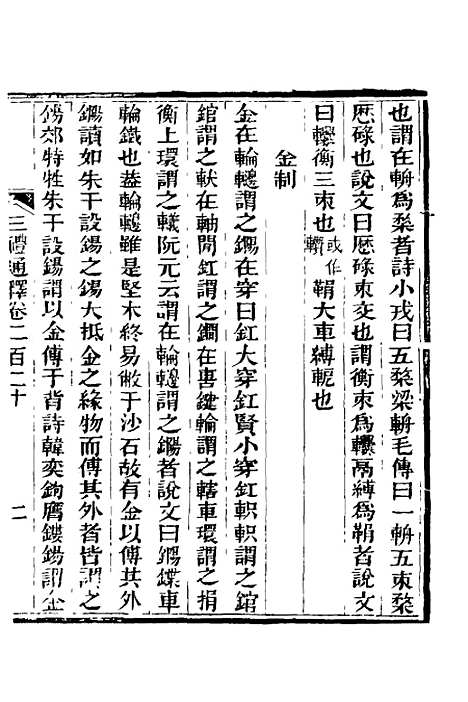 也謂在輈爲楘者詩小戎曰五楘梁輈毛傳曰一輈五束楘
歴碌也說文曰歴碌束交也謂衡束爲䡽鬲縛爲䩛者說文
曰䡽衡三束也或作䡽䩛大車縛軶也
金制
金在輪轙謂之鍚在穿曰釭大穿釭賢小穿釭軹軹謂之錧
錧謂之軑在軸間釭謂之鐧在軎鍵輪謂之轄車環謂之捐
衡上環謂之轙阮元云謂在輪轙謂之鍚者說文曰鍚鍱車
輪鐵也葢輪轙雖是堅木終易敝于沙石故有金以傅其外
鍚讀如朱干設鍚之鍚大抵金之緣物而傅其外者皆謂之
鍚郊特牲朱干設鍚謂以金傅于背詩韓奕鉤膺鏤鍚謂金
三禮通釋卷二百二十
二